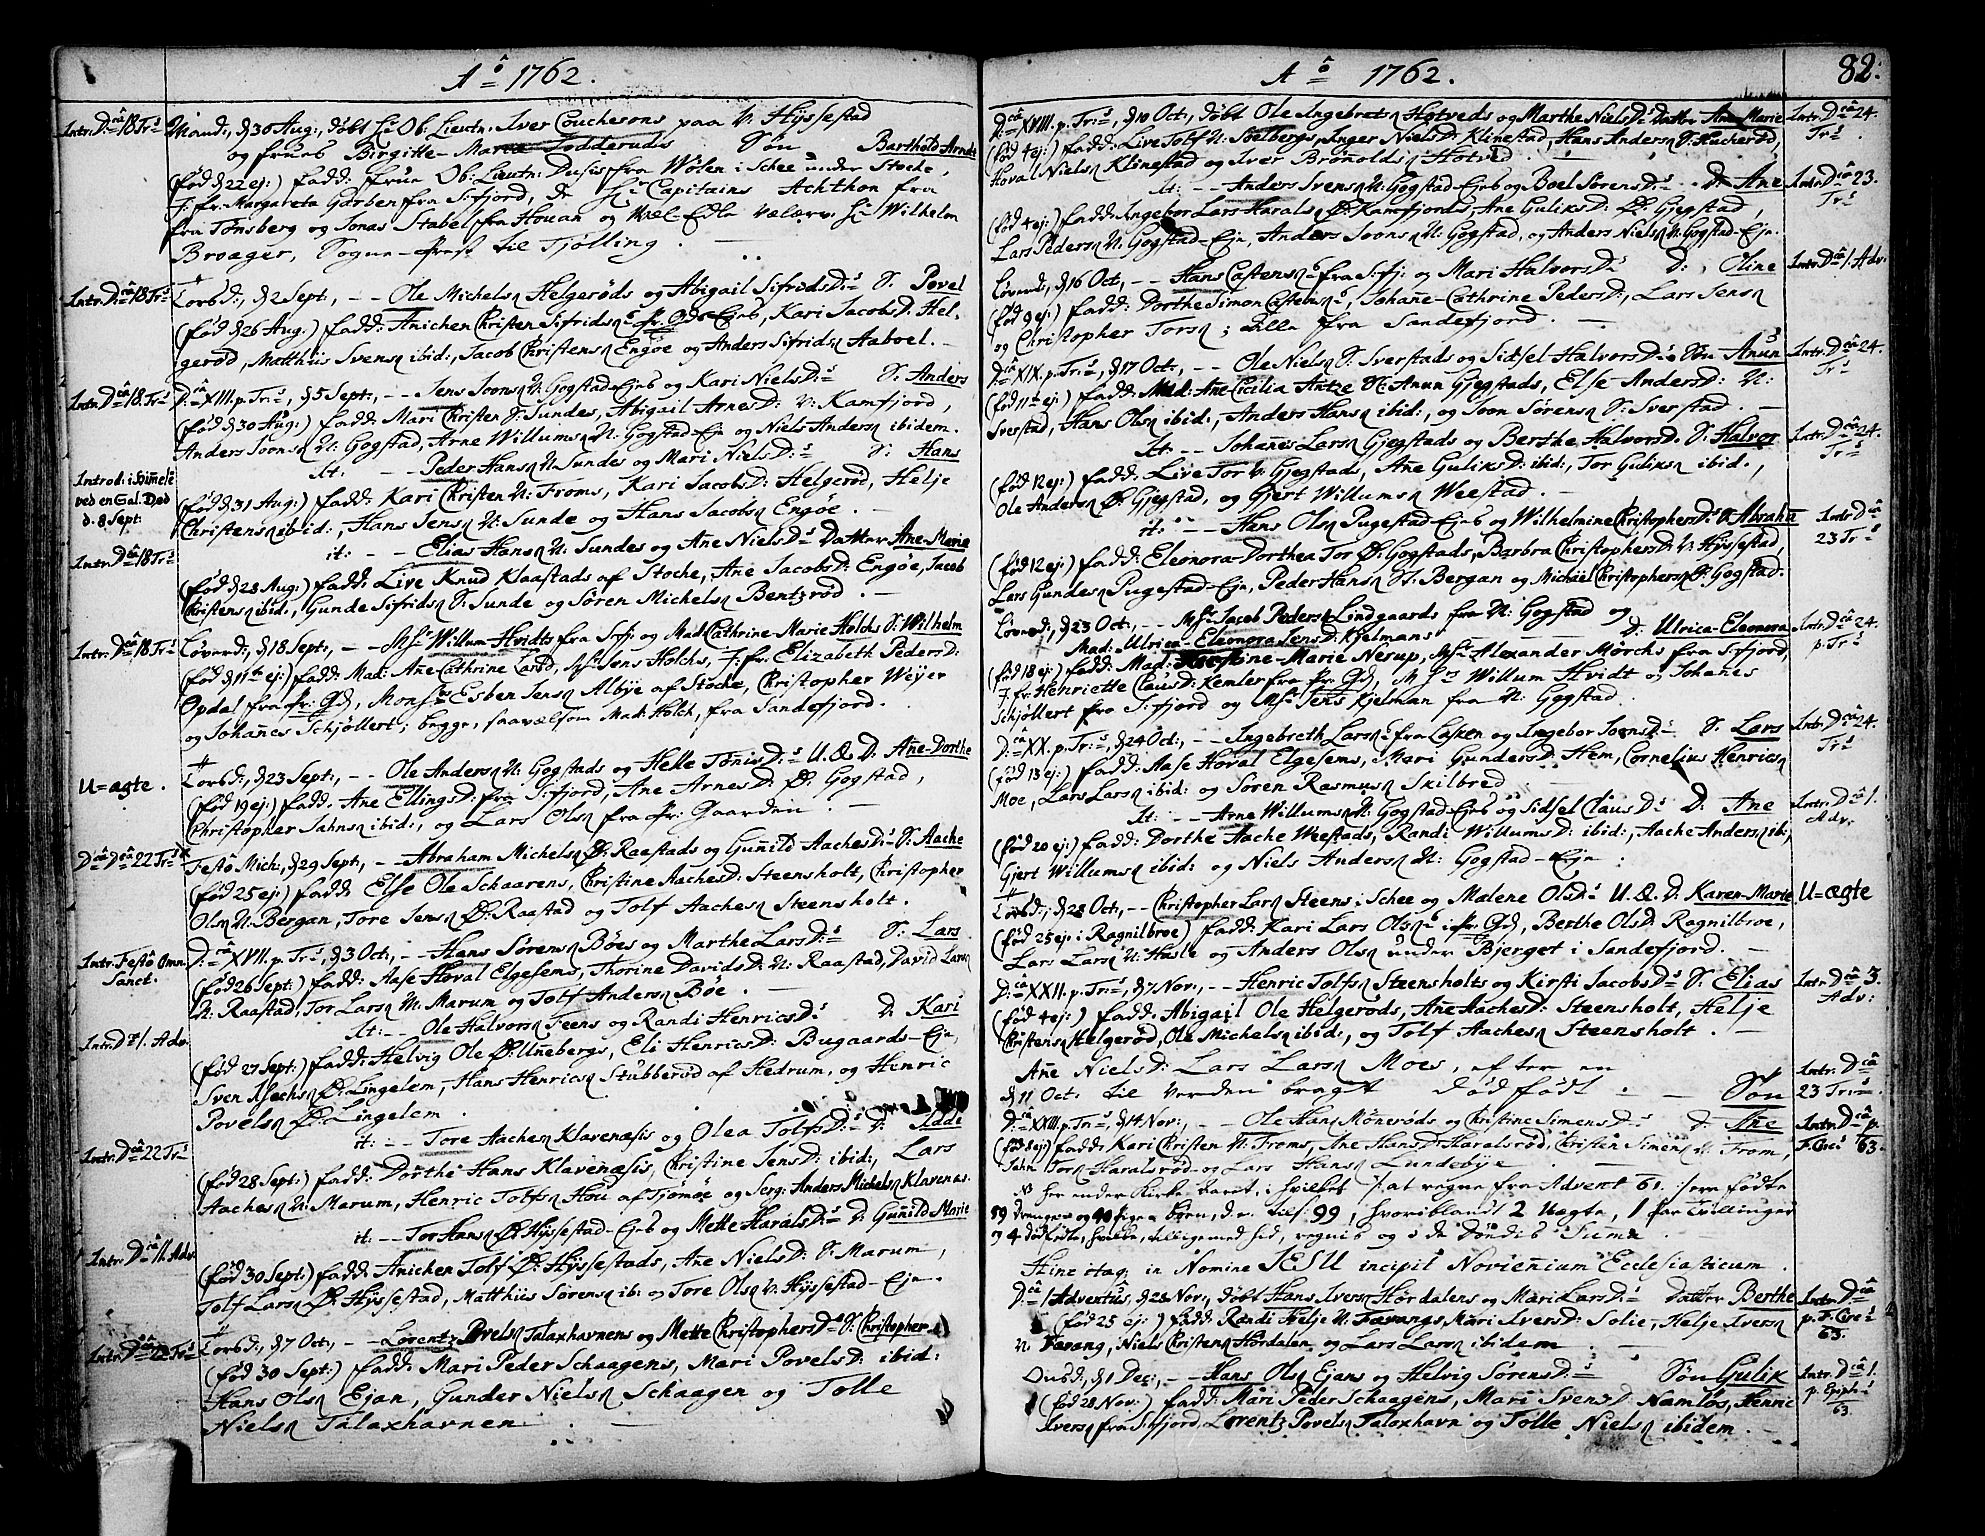 Aô 1762.
Intr: D:câ 18 Tr:s
Mand:, d 30 Aug:, døbt Hr Ob: Lieutn: Iver Couchesons paa V: Hÿssestad
og frues Birgitte-Maria Todderuds Søn Barthold Arndt
(fød d 22 ej:) fadd: frue Ob: Lieutn: Dusis fra Wølen i Schee under Stoche,
J: fr: Margareta Garben fra S:fjord, de Hr Capitains Achthon fra
fra Tønsberg og Jonas Stabel fra Houan og Wæl-Edle Velærv: Hr Wilhelm
Broager, Sogne-Præst til Tjølling.
Intr: D:câ 18 Tr:s
Torsd:, d 2 Sept:, -- Ole Michelsn Helgerøds og Abigail SifridsD:s S: Povel
(fød d 26 Aug:) fadd: Anichen Christen Sifridsns Pr: Gds Ejes, Kari JacobsD: Hel-
gerød, Matthiis Svensn ibid:, Jacob Christensn Engøe og Anders Sifridsn Aaboel.
Intr: D:câ 18. Tr:s
D:câ XIII. p. Tr:s, d 5 Sept:, -- Jens Joonsn N: Gogstad-Ejes og Kari NielsD:s S: Anders
(fød d 30 Aug:) fadd: Mari Christen S: Sundes, Abigail ArnesD: V: Kamfjord,
Anders Joonsn N: Gogstad, Arne Willumsn N: Gogstad-Eje og Niels Andersn ibidem.
Introd: i Himele
ved en Gal. Død
d. 8 Sept:
It: -- Peder Hansn N: Sundes og Mari NielsD:s S: Hans
(fød d 31 Aug:) fadd: Kari Christen N: Froms, Kari JacobsD: Helgerød, Helje
Christensn ibid:, Hans Jensn N: Sunde og Hans Jacobsn Engøe.
Intr: D:câ 18 Tr:s
it: -- Elias Hansn N: Sundes og Ane NielsD:s Datter Ane-Marie
(fød d 28 Aug:) fadd: Live Knud Klaastads af Stoche, Ane JacobsD: Engøe, Jacob
Christensn ibid:, Gunde Sifridsn S: Sunde og Søren Michelsn Bentzrød.
Intr: D:câ 18 Tr:s
Løverd:, d 18 Sept:, -- Msr Willum Hvidts fra S:fj: og Mad: Cathrine-Marie Holchs S: Wilhelm
(fød d 11te ej:) fadd: Mad: Ane-Cathrine Land, Msr Jens Holchs, J: fr: Elizabeth PedersD:
Opdal fra Pr: Gd, Monsr Esben Jensn Albÿe af Stoche, Christopher Weÿer
og Johanes Schjøllert; begge, saavelsom Mad: Holch, fra Sandefjord.
U=ægte.
Torsd:, d 23 Sept:, -- Ole Andersn N: Gogstads og Helle TønisD:s U. Æ. D: Ane-Dorthe
(fød 19 ej:) fadd. Ane EllingsD: fra S:fjord, Ane ArnesD: Ø: Gogstad,
Christopher Jahnsn ibid:, og Lars Olsn fra Pr: Gaarden.
D:câ D:câ 22 Tr:s
Festo Mich:, d 29 Sept:, -- Abraham Michelsn Ø: Raastads og Gunild AachesD:s S: Aache
(fød 25 ej:) fadd: Else Ole Schaarens, Christine AachesD: Steensholt, Christopher
Olsn N: Bergan, Tore Jensn Ø: Raastad og Tolf Aachesn Steensholt.
Intr: Festo Omn:
Sanct.
D:câ XVII. p. Tr:s, d 3 Oct:, -- Hans Sørensn Bøes og Marthe LarsD:s S: Lars
(fød 26 Sept:) fadd: Aase Hoval Elgesems, Thorine DavidsD: N: Raastad, David Larsn
N: Raastad, Tor Larsn N: Marum og Tolf Andersn Bøe.
Intr: D:câ 1. Adv:
It: -- Ole Halvorsn Feens og Randi HenricsD:s D: Kari
(fød 27 Sept:) fadd: Helvig Ole Ø: Unebergs, Eli HenricsD: Bugaards-Eje,
Sven Ø: Lingelem, Hans Henricsn Stubberød af Hedrum, og Henric
Povelsn Ø: Lingelem.
Intr: D:câ 22 Tr:s
it: -- Tore Aachesn Klavenæsis og Olea TolfsD:s D: Idde
(fød 28 Sept:) fadd: Dorthe Hans Klavenæsis, Christine JensD: ibid:, Lars
Aachesn N: Marum, Henric Tolfsn Hou af Tjømøe og Serg: Anders Michelsn Klavenæs.
Intr: D:câ 1. Adv:
it: -- Tor Hansn Ø: Hÿssestad-Ejes og Mette HaralsD:s D: Gunild Marie
(fød 30 Sept:) fadd: Anichen Tolf Ø: Hÿssestads, Ane NielsD: S: Marum,
Tolf Larsn Ø: Hÿssestad, Matthiis Sørensn ib: og Tore Olsn V: Hÿssestad-Eje.
Intr: D:câ 22 Tr:s
Torsd:, d 7 Oct:, -- Lorentz Povelsn Talaxhavnens og Mette ChristophersD:s S: Christopher
(fød 30 Sept:) fadd: Mari Peder Schaagens, Mari PovelsD: ibid:
Hans Olsn Ejan, Gunder Nielsn Schaagen og Tolle
Nielsn Talaxhavnen.
Aô 1762. 82.
D:câ XVIII. p. Tr:s, d 10 Oct:, døbt Ole Ingebretsn Hotveds og Marthe NielsD:s Datter Ane-Marie
Intr: D:câ 24.
Tr:s
(fød 4 ej:) fadd: Live Tolf N: Soelbergs, Inger NielsD: Klinestad, Hans Andersn S: Kucherød,
Hoval Nielsn Klinestad og Iver Brønolds Hotved.
It: -- Anders Svensn N: Gogstad-Ejes og Boel SørensD:s D: Ane
Intr: D:câ 23.
Tr:s
(fød 4 ej:) fadd: Ingebor Lars Harals Ø: Kamfjords, Ane GuliksD: Ø: Gjegstad,
Lars Pedersn N: Gogstad-Eje, Anders Joonsn N: Gogstad, og Anders Nielsn N: Gogstad-Eje.
Løverd:, d 16 Oct:, -- Hans Castensns fra S:fj: og Mari HalvorsD:s D: Oline
Intr: D:câ 1. Adv:
(fød 9 ej:) fadd: Dorthe Simon Castensns, Johane-Cathrine PedersD:, Lars Jensn
og Christopher Torsn; alle fra Sandefjord.
D:câ XIX. p. Tr:s, d 17 Oct:, -- Ole Nielsn S: Sverstads og Sidsel HalvorsD:s Søn Anun
Intr: D:câ 24.
Tr:s
(fød 11te ej:) fadd: Mad: Ane Cicilia Antze, Anun Gjegstads, Else AndersD: N:
Sverstad, Hans Olsn ibid:, Anders Hansn ibid:, og Joon Sørensn S: Sverstad.
It: -- Johanes Larsn Gjegstads og Berthe HalvorsD: S: Halvor
Intr: D:câ 24.
Tr:s
(fød 12 ej:) fadd: Live Tor V: Gjegstads, Ane GuliksD: ibid:, Tor Guliksn ibid.,
Ole Andersn Ø: Gjegstad, og Gjert Willumsn Weestad.
it: -- Hans Olsn Pugestad-Ejes og Wilhelmine ChristophersD:s S: Abrahn
Intr: D:câ
23 Tr:s
(fød 12 ej:) fadd: Eleonora-Dorthea Tor Ø: Gogstads, Barbra ChristophersD: V: Hÿssestad,
Lars Gundesn Pugestad-Eje, Peder Hansn N: Bergan og Michael Christophersn Ø: Gogstad.
Løverd:, d 23 Oct:, -- Msr Jacob Pedersn Lindgaards fra N: Gogstad og
Mad: Ulrica-Eleonora JensD: Kjelmans D: Ulrica-Eleonora
Intr: D:câ 24.
p. Tr:s
(fød 18 ej:) fadd: Mad: Kierstine-Marie Nerup, Msr Alexander Mørchs fra S:fjord,
J fr: Henriette ClausD: Kemler fra Pr: Gd, Msr Willum Hvidt og Johanes
Schjøllert fra S:fjord og Msr Jens Kjelman fra N: Gogstad.
D:câ XX. p. Tr:s, d 24 Oct:, -- Ingebreth Larsns fra Lasken og Ingebor JoonsD:s S: Lars
Intr: D:câ 24.
Tr:s
(fød 13 ej:) fadd: Aase Hoval Elgesems, Mari GundersD: Hem, Cornelius Henricsn
Moe, Lars Larsn ibid: og Søren Rasmusn Skilbred
It: -- Arne Willumsn N: Gogstad-Ejes og Sidsel ClausD:s D: Ane
Intr: D:câ 1.
Adv:
(fød 20 ej:) fadd: Dorthe Aache Weestads, Randi WillumsD: ibid:, Aache Andersn ib:,
Gjert Willumsn ibid: og Niels Andersn N: Gogstad-Eje:
Torsd:, d 28 Oct:, -- Christopher Larsn Steens i Schee og Malene OlsD:s U. Æ. D: Karen-Marie
U=ægte
(fød 25 ej: i Ragnilbroe) fadd: Kari Lars Olsns i Pr: Gd, Berthe OlsD: Ragnilbroe,
Lars Larsn N: Hasle og Anders Olsn under Bjerget i Sandefjord.
D:câ XXII. p. Tr:s, d 7 Nov:, -- Henric Tolfsn Steensholts og Kirsti JacobsD:s S: Elias
Intr: D:câ 3.
Adv:
(fød 4 ej:) fadd: Abigail Ole Helgerøds, Ane AachesD: Steensholt, Helje
Christensn Helgerød, Ole Michelsn ibid:, og Tolf Aachesn Steensholt.
Ane NielsD: Lars Larsn Moes, efter en
d 11 Oct: til Verden bragt Dødfødt Søn
Intr: D:câ
23 Tr:s
D:câ XXIII. p. Tr:s, d 14 Nov:, -- Ole Hansn Mønerøds og Christine SimensD:s D: Ane
Intr: D:câ p.
F. Circ: 63.
(fød 8 ej:) fadd: Kari Christen N: Froms, Ane HansD: Haralsrød, Christen Simensn N: From,
Jahn Torsn Haralsrød og Lars Hansn Lundebÿe.
NB her under Kirke Aaret, i hvilket /: at regne fra Advent 61. :/ ere fødte
59 Drenge og 40 Pige-Børn, d. e. tils: 99, hvoriblandt 2 Uægte, 1 Par Tvillinger
og 4 dødfødte, hvilke, tillige med hid, regnis og i de Dødis Suma.
Hinc itaq; in Nomine JESU incipit Novienium Ecclesiasticum.
D:câ 1 Adventûs, d 28 Nov:, døbt Hans Iversn Hørdalens og Mari LarsD:s Datter Berthe
Intr: D:câ
p. F. Circ:
63.
(fød 25 ej:) fadd: Randi Helje N: Favangs, Mari IversD: Solie, Helje Iversn
N: Favang, Niels Christensn Hørdalen og Lars Larsn ibidem.
Onsd:, d 1 Dec:, -- Hans Olsn Ejans og Helvig SørensD:s Søn Gulik
Intr: D:câ 1.
p. Epiph:
63
(fød 28 Nov:) fadd: Mari Peder Schaagens, Mari SvensD: Namløs, Henric
Iversn fra S:fjord, Lorentz Povelsn Talaxhavn og Tolle Nielsn ibidem.